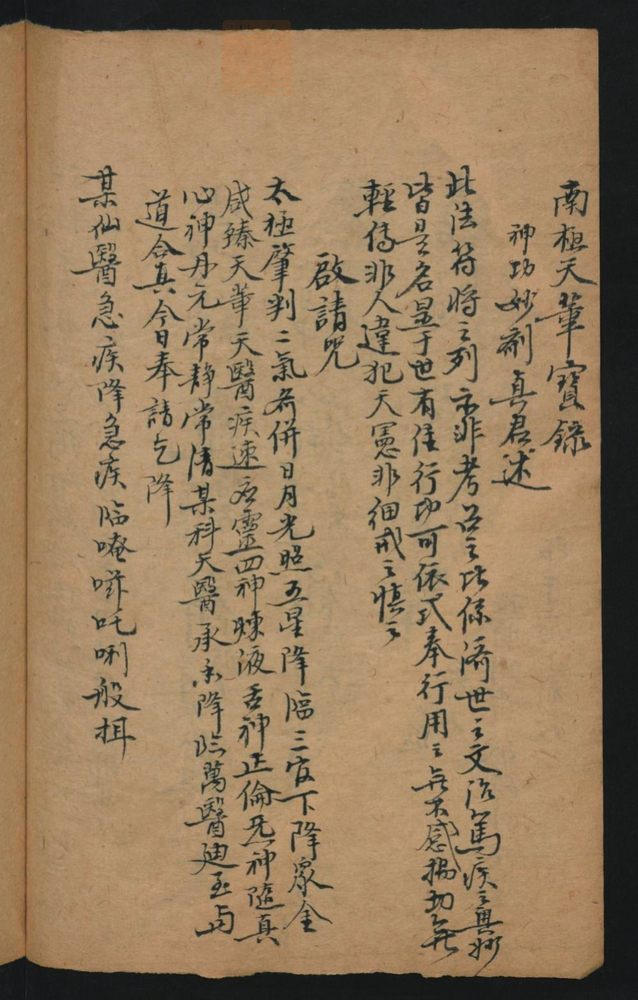 南極天華寶籙
神功妙劑真君述
此法符將之列亦非考召之比係濟世之文治篤疾之奧妙
皆是名显于世有佳行功可依式奉行用之無不感揚切無
輕傳非人違犯天憲非細戒之慎之
啟請咒
太極肇判二氣若併日月光照五星降臨三官下降眾全
咸臻天華天醫疾速舌靈四神煉液舌神正倫炁神隨真
心神丹元常靜常清某科天醫承令降臨萬醫連至与
道合真今日奉請乞降
某仙醫急疾降急疾臨唵㗭吒唎般揖